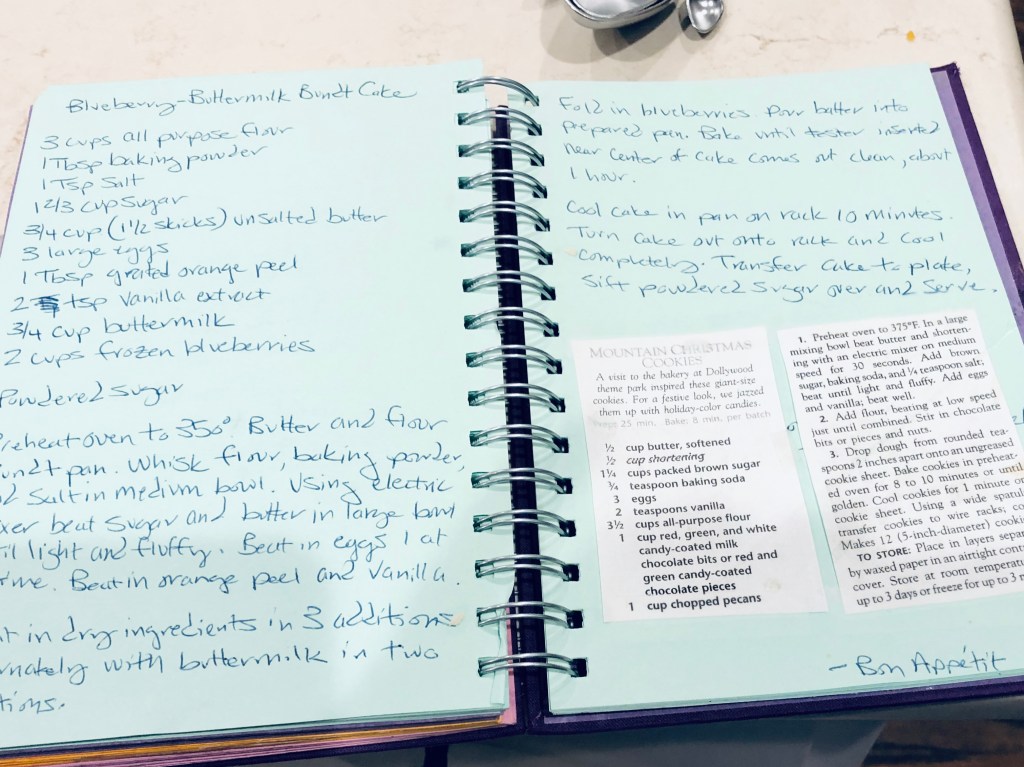 Blueberry-Buttermilk Bundt Cake
3 cups all purpose flour
1 Tbsp baking powder
1 Tsp Salt
1 2/3 cup sugar
3/4 cup (1 1/2 sticks) unsalted butter
3 large eggs
1 Tbsp grated orange peel
2 tsp vanilla extract
3/4 cup buttermilk
2 cups frozen blueberries
Powdered sugar
reheat oven to 350°. Butter and flour
undt pan. Whisk flour, baking powder,
nd salt in medium bowl. Using electric
ixer beat sugar and butter in large bowl
til light and fluffy. Beat in eggs 1 at
time. Beat in orange peel and vanilla.
at in dry ingredients in 3 additions
rnately with buttermilk in two
tions.
Fold in blueberries. Pour batter into
prepared pan. Bake until tester inserted
near center of cake comes out clean, about
1 hour.
Cool cake in pan on rack 10 minutes.
Turn cake out onto rack and cool
completely. Transfer cake to plate,
sift powdered sugar over and serve.
MOUNTAIN CHRISTMAS
COOKIES
A visit to the bakery at Dollywood
theme park inspired these giant-size
cookies. For a festive look, we jazzed
them up with holiday-color candies.
Prep: 25 min. Bake: 8 min. per batch
½ cup butter, softened
½ cup shortening
1¼ cups packed brown sugar
¾ teaspoon baking soda
3 eggs
2 teaspoons vanilla
3½ cups all-purpose flour
1 cup red, green, and white
candy-coated milk
chocolate bits or red and
green candy-coated
chocolate pieces
1 cup chopped pecans
1. Preheat oven to 375°F. In a large
mixing bowl beat butter and shorten-
ing with an electric mixer on medium
speed for 30 seconds. Add brown
sugar, baking soda, and ¼ teaspoon salt;
beat until light and fluffy. Add eggs
and vanilla; beat well.
2. Add flour, beating at low speed
just until combined. Stir in chocolate
bits or pieces and nuts.
3. Drop dough from rounded tea-
spoons 2 inches apart onto an ungreased
cookie sheet. Bake cookies in preheat-
ed oven for 8 to 10 minutes or until
golden. Cool cookies for 1 minute on
cookie sheet. Using a wide spatul
transfer cookies to wire racks; co
Makes 12 (5-inch-diameter) cooki
TO STORE: Place in layers separ
by waxed paper in an airtight conta
cover. Store at room temperatu
up to 3 days or freeze for up to 3 m
- Bon Appétit